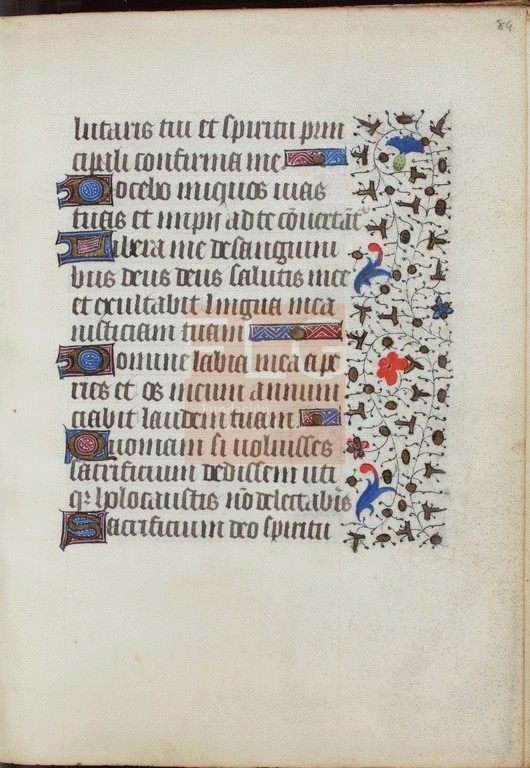 84
lutaris tui et spiritu prin
cipali confirma me
Docebo iniquos uias
tuas et impii ad te cōuertāt͛
Libera me de sanguini
bus deus deus salutis mee
et exultabit lingua mea
iusticiam tuam
Domine labia mea ape
ries et os meum annunt
ciabit laudem tuam
Quoniam si uoluisses
sacrificium dedissem uti
qꝫ holocaustis nō delectabis
Sacrificium deo spiritu